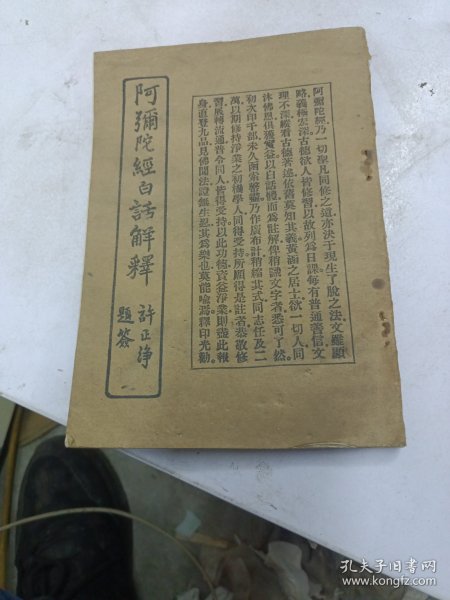 阿彌陀經乃一切聖凡同修之道亦決于現生了脫之法文雖顯
路義極宏深古德欲人皆修習以故列為日課每有普通善信文
理不深縱看古德著述依舊莫知其義黃涵之居士欲一切人同
沐佛恩俱獲實益以白話體而為註解俾稍識文字者悉可了然。
初次印千部未久函索罄盡乃作廣布計稍縮其式同志任及二
萬以期修持淨業之初機學人同得受持所願得是註者悉敬修
習展轉流通普令同人皆得受持以此功德資益淨業則盡此報
身直登九品見佛聞法證無生忍其為樂也莫能喻焉釋印光勒
阿彌陀經白話解釋
許止淨
題簽
孔夫子旧书网
www.kongfz.com